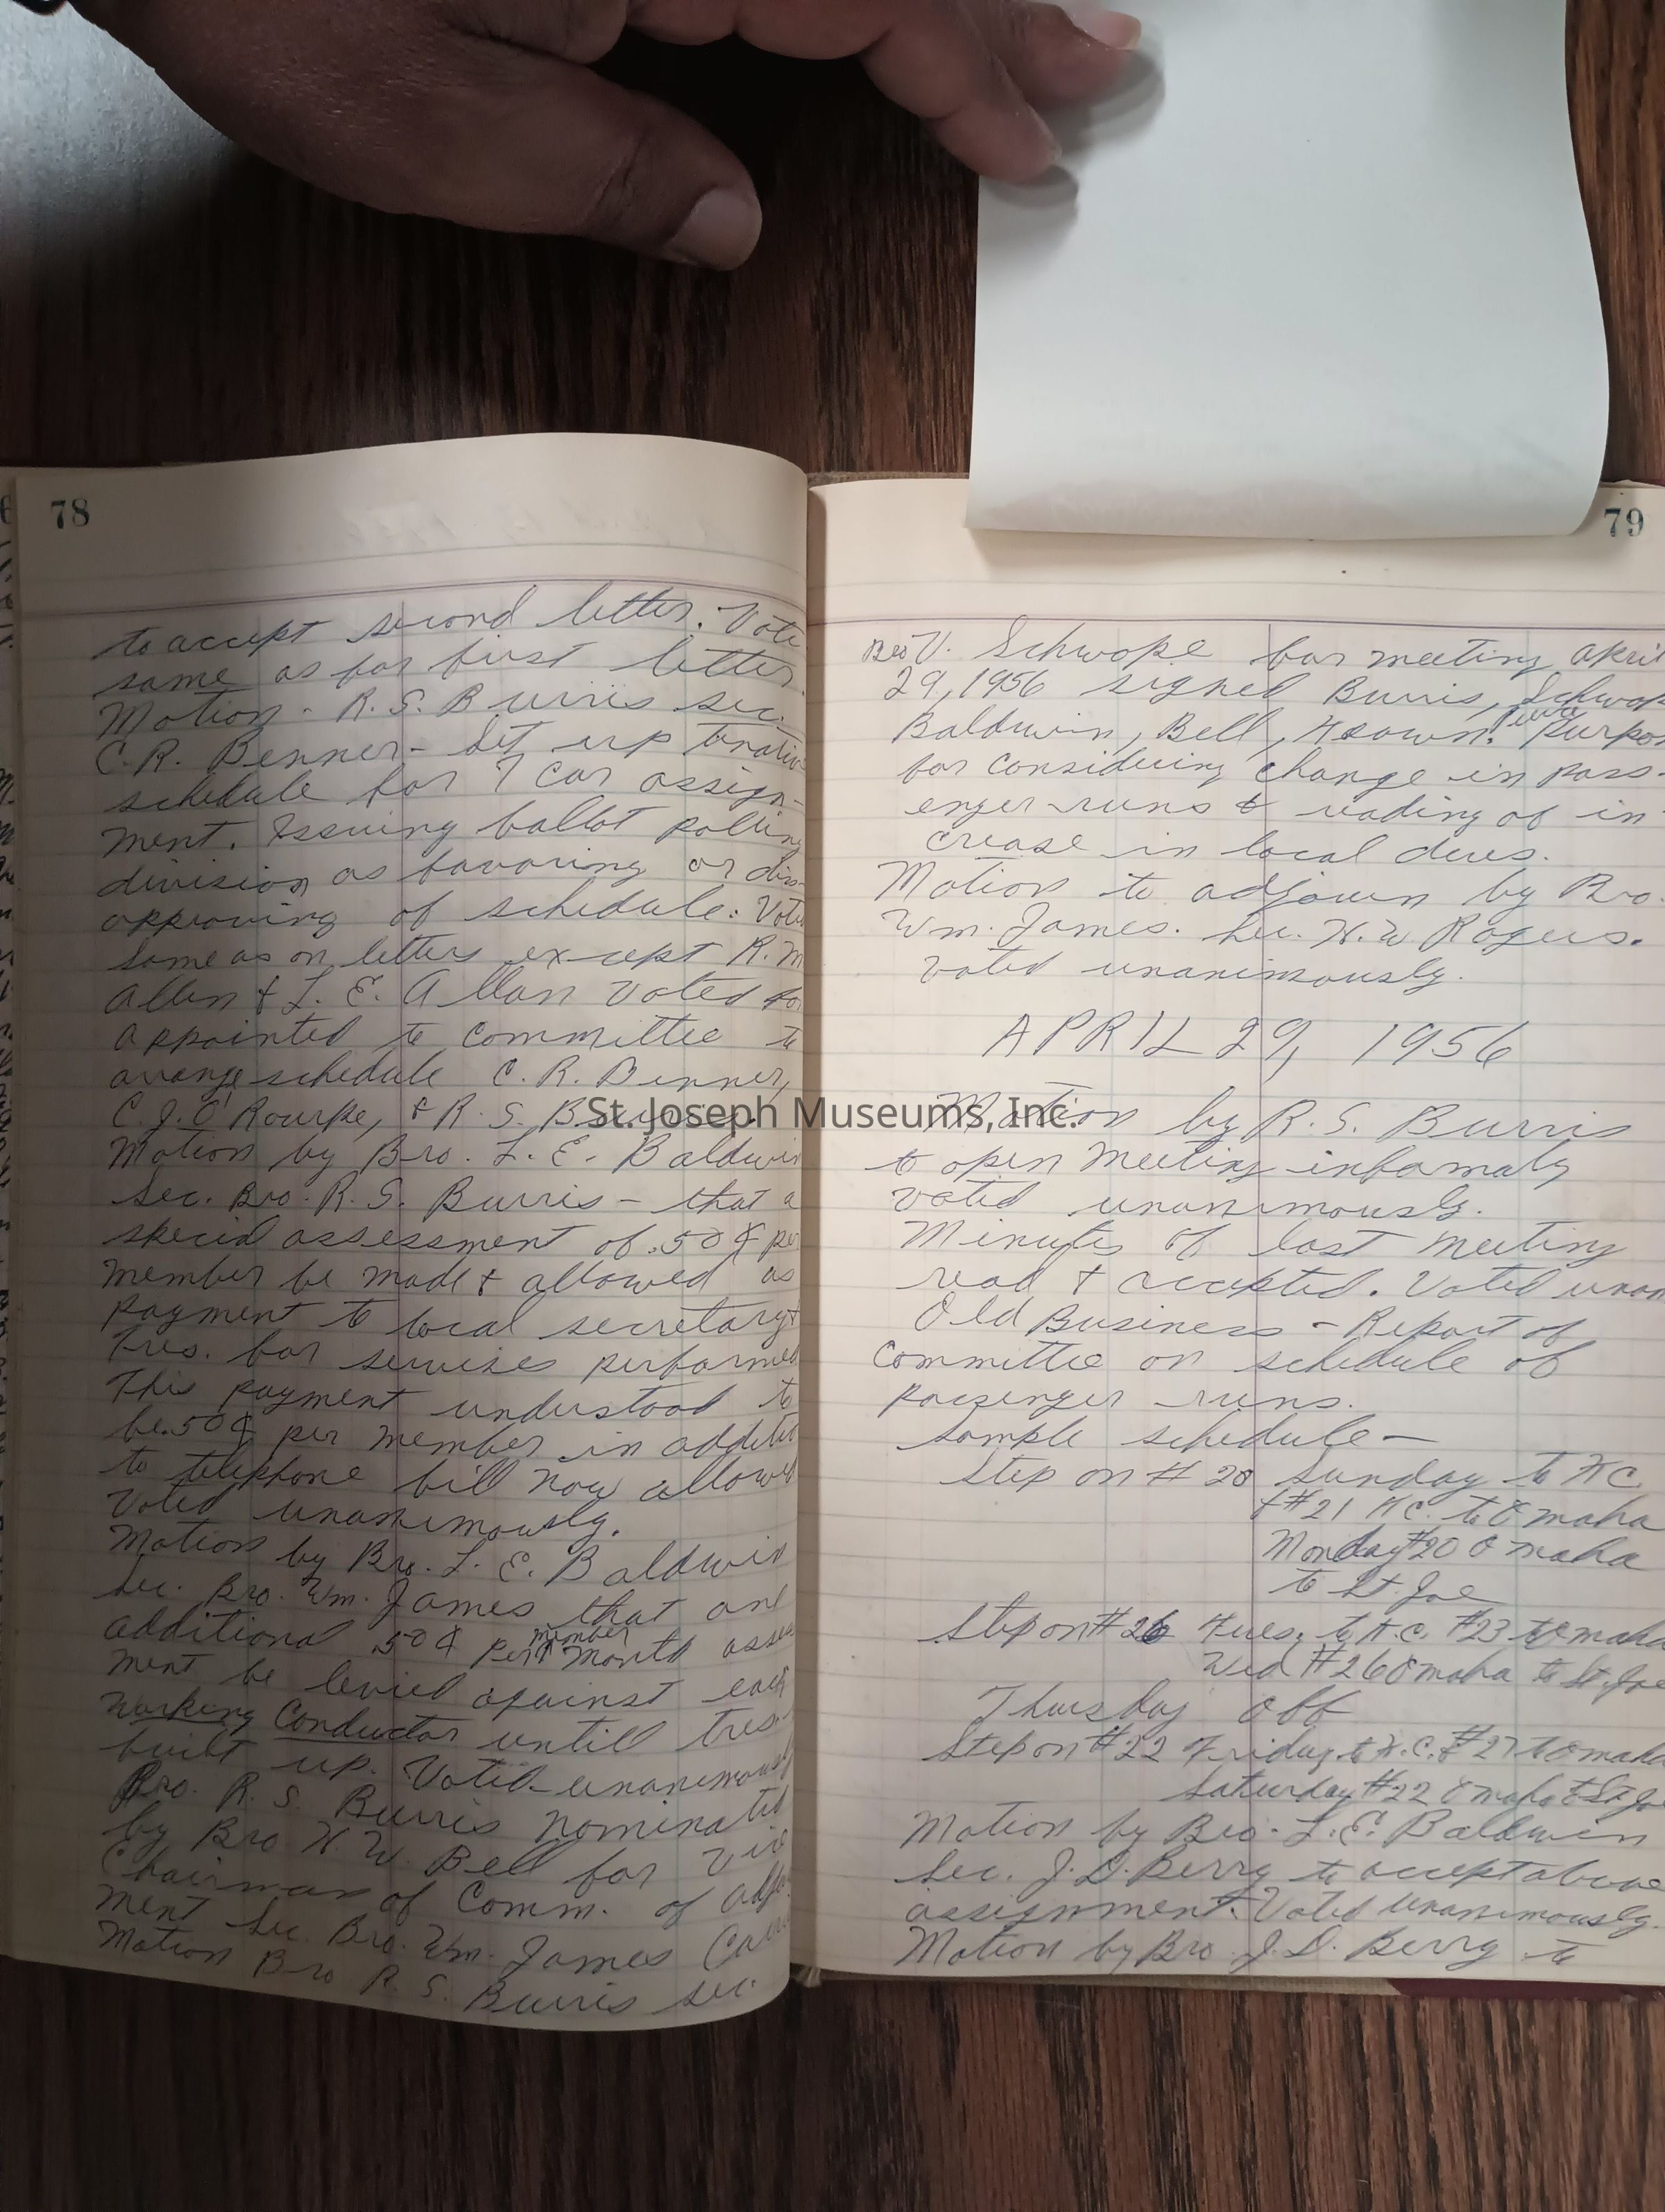 78
to accept second letter. Vote
same as for first letter.
Motion - R.S. Burris sec.
C.R. Benner - Set up tenative
schedule for 7 car assign-
ment. Issuing ballot polling
division as favoring or dis-
approving of schedule. Vote
same as on letters except R.M
Allen & L. E. Allan voted for
Appointed to committee to
arange schedule C. R. Benner,
C.J. O'Rourke, & R. S. Burris.
Motion by Bro. L. E. Baldwin
Sec. Bro. R. S. Burris - that a
special assessment of .50¢ per
member be made & allowed as
payment to local secretary &
Tres. for services performed
This payment understood to
be .50¢ per member in addition
to telephone bill now allowed
Voted unanimously.
Motion by Bro. L. E. Baldwin
Sec. Bro. Wm. James that an
additional .50¢ per member month assess
ment be levied against each
working Conductor until tres.
built up. Voted unanimously
Bro. R. S. Burris nominated
by Bro H. W. Bell for vice
Chairman of Comm. of adjust
ment Sec. Bro. Wm. James
Motion Bro R. S. Burris sec.
79
Bro V. Schwope for meeting April
29, 1956 signed Burris, Schwope
Baldwin, Bell, Purpose
for considering change in pass-
enger runs & reading of in-
crease in local dues.
Motion to adjourn by Bro.
Wm. James. Sec. H. W Rogers.
Voted unanimously.
APRIL 29, 1956
Motion by R. S. Burris
to open meeting informaly
voted unanimously.
Minutes of last meeting
read & accepted. Voted unan
Old Business - Report of
committee on schedule of
passenger runs.
Sample schedule -
Step on # 20 Sunday to KC
& #21 K.C. to Omaha
Monday #20 Omaha
to St. Joe
Step on # 26 Tues. to K.C. #23 to Omaha
Wed #26 Omaha to St. Joe
Thursday off
Step on #22 Friday to K.C. & #27 to Omaha
Saturday #22 Omaha to St Joe
Motion by Bro. L. E. Baldwin
Sec. J. D. Berry to accept above
assignment. Voted unanimously.
Motion by Bro J. D. Berry to
St. Joseph Museums, Inc.